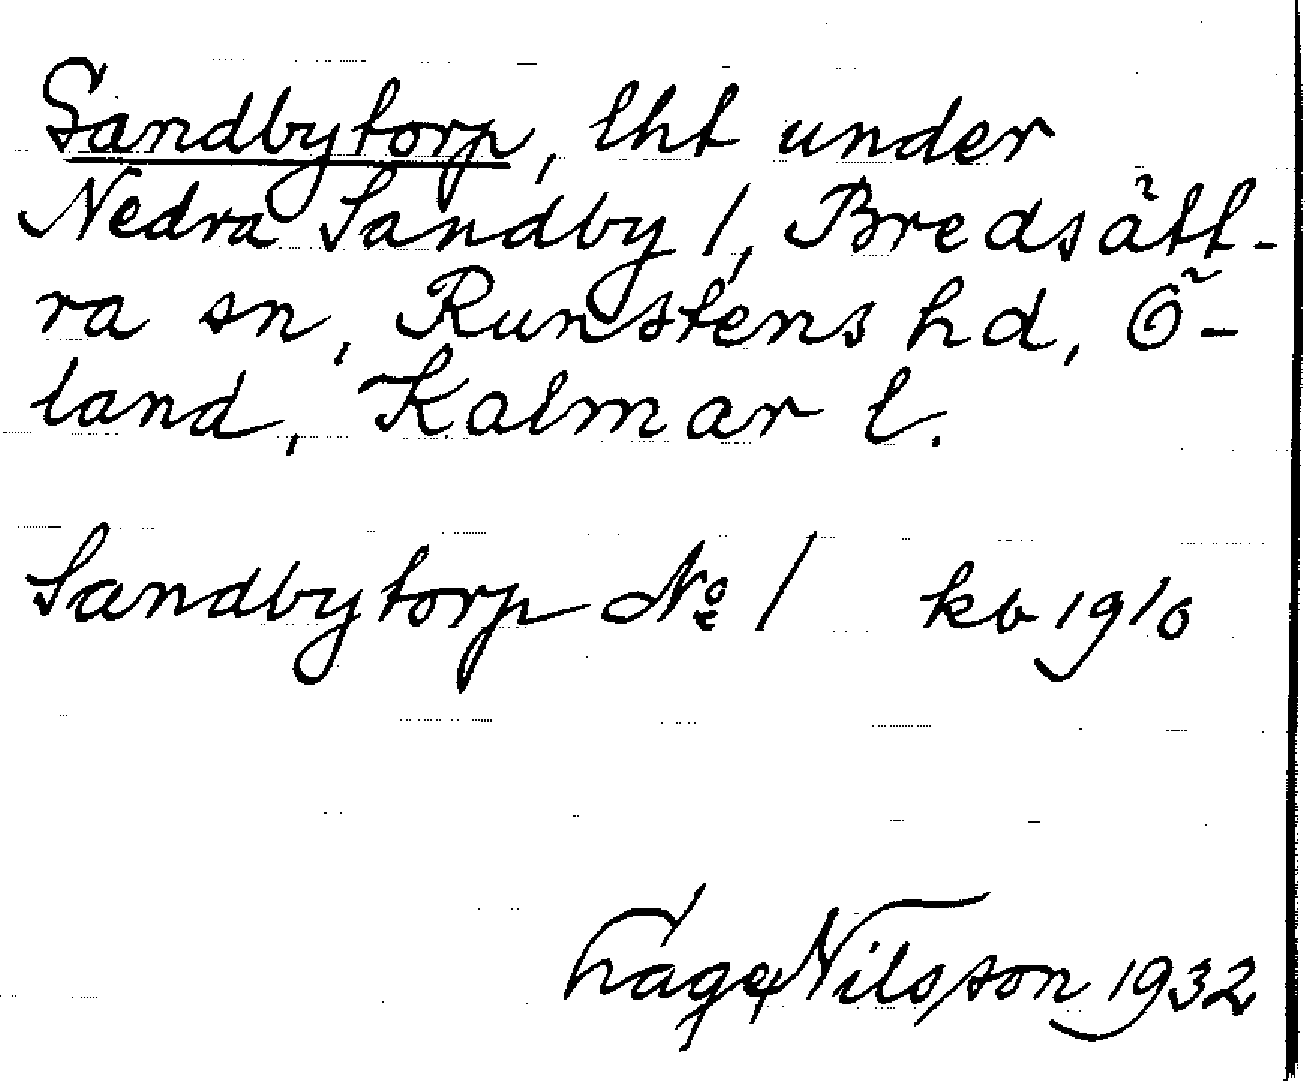 Sandbytorp, lht under
Nedra Sandby 1, Bredsätt-
ra sn, Runstens hd, Ö-
land, Kalmar l.
Sandbytorp № 1 kb 1910
Hage Nilsson 1932